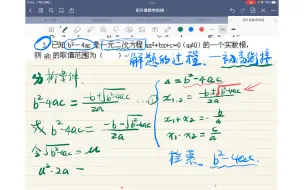 ③ 已知 b²-4ac 是一元二次方程 ax²+bx+c=0 (a≠0) 的一个实数根,
则 ab 的取值范围为
解题的过程
分析条件
b²-4ac = (-b+√(b²-4ac))/2a ①
或 b²-4ac = (-b-√(b²-4ac))/2a
令√(b²-4ac) = u
u²·2a =
Δ = b²-4ac
x₁.₂ = (-b±√(b²-4ac))/2a
x₁+x₂ = -b/a
x₁·x₂ = c/a
档案 b²-4ac.